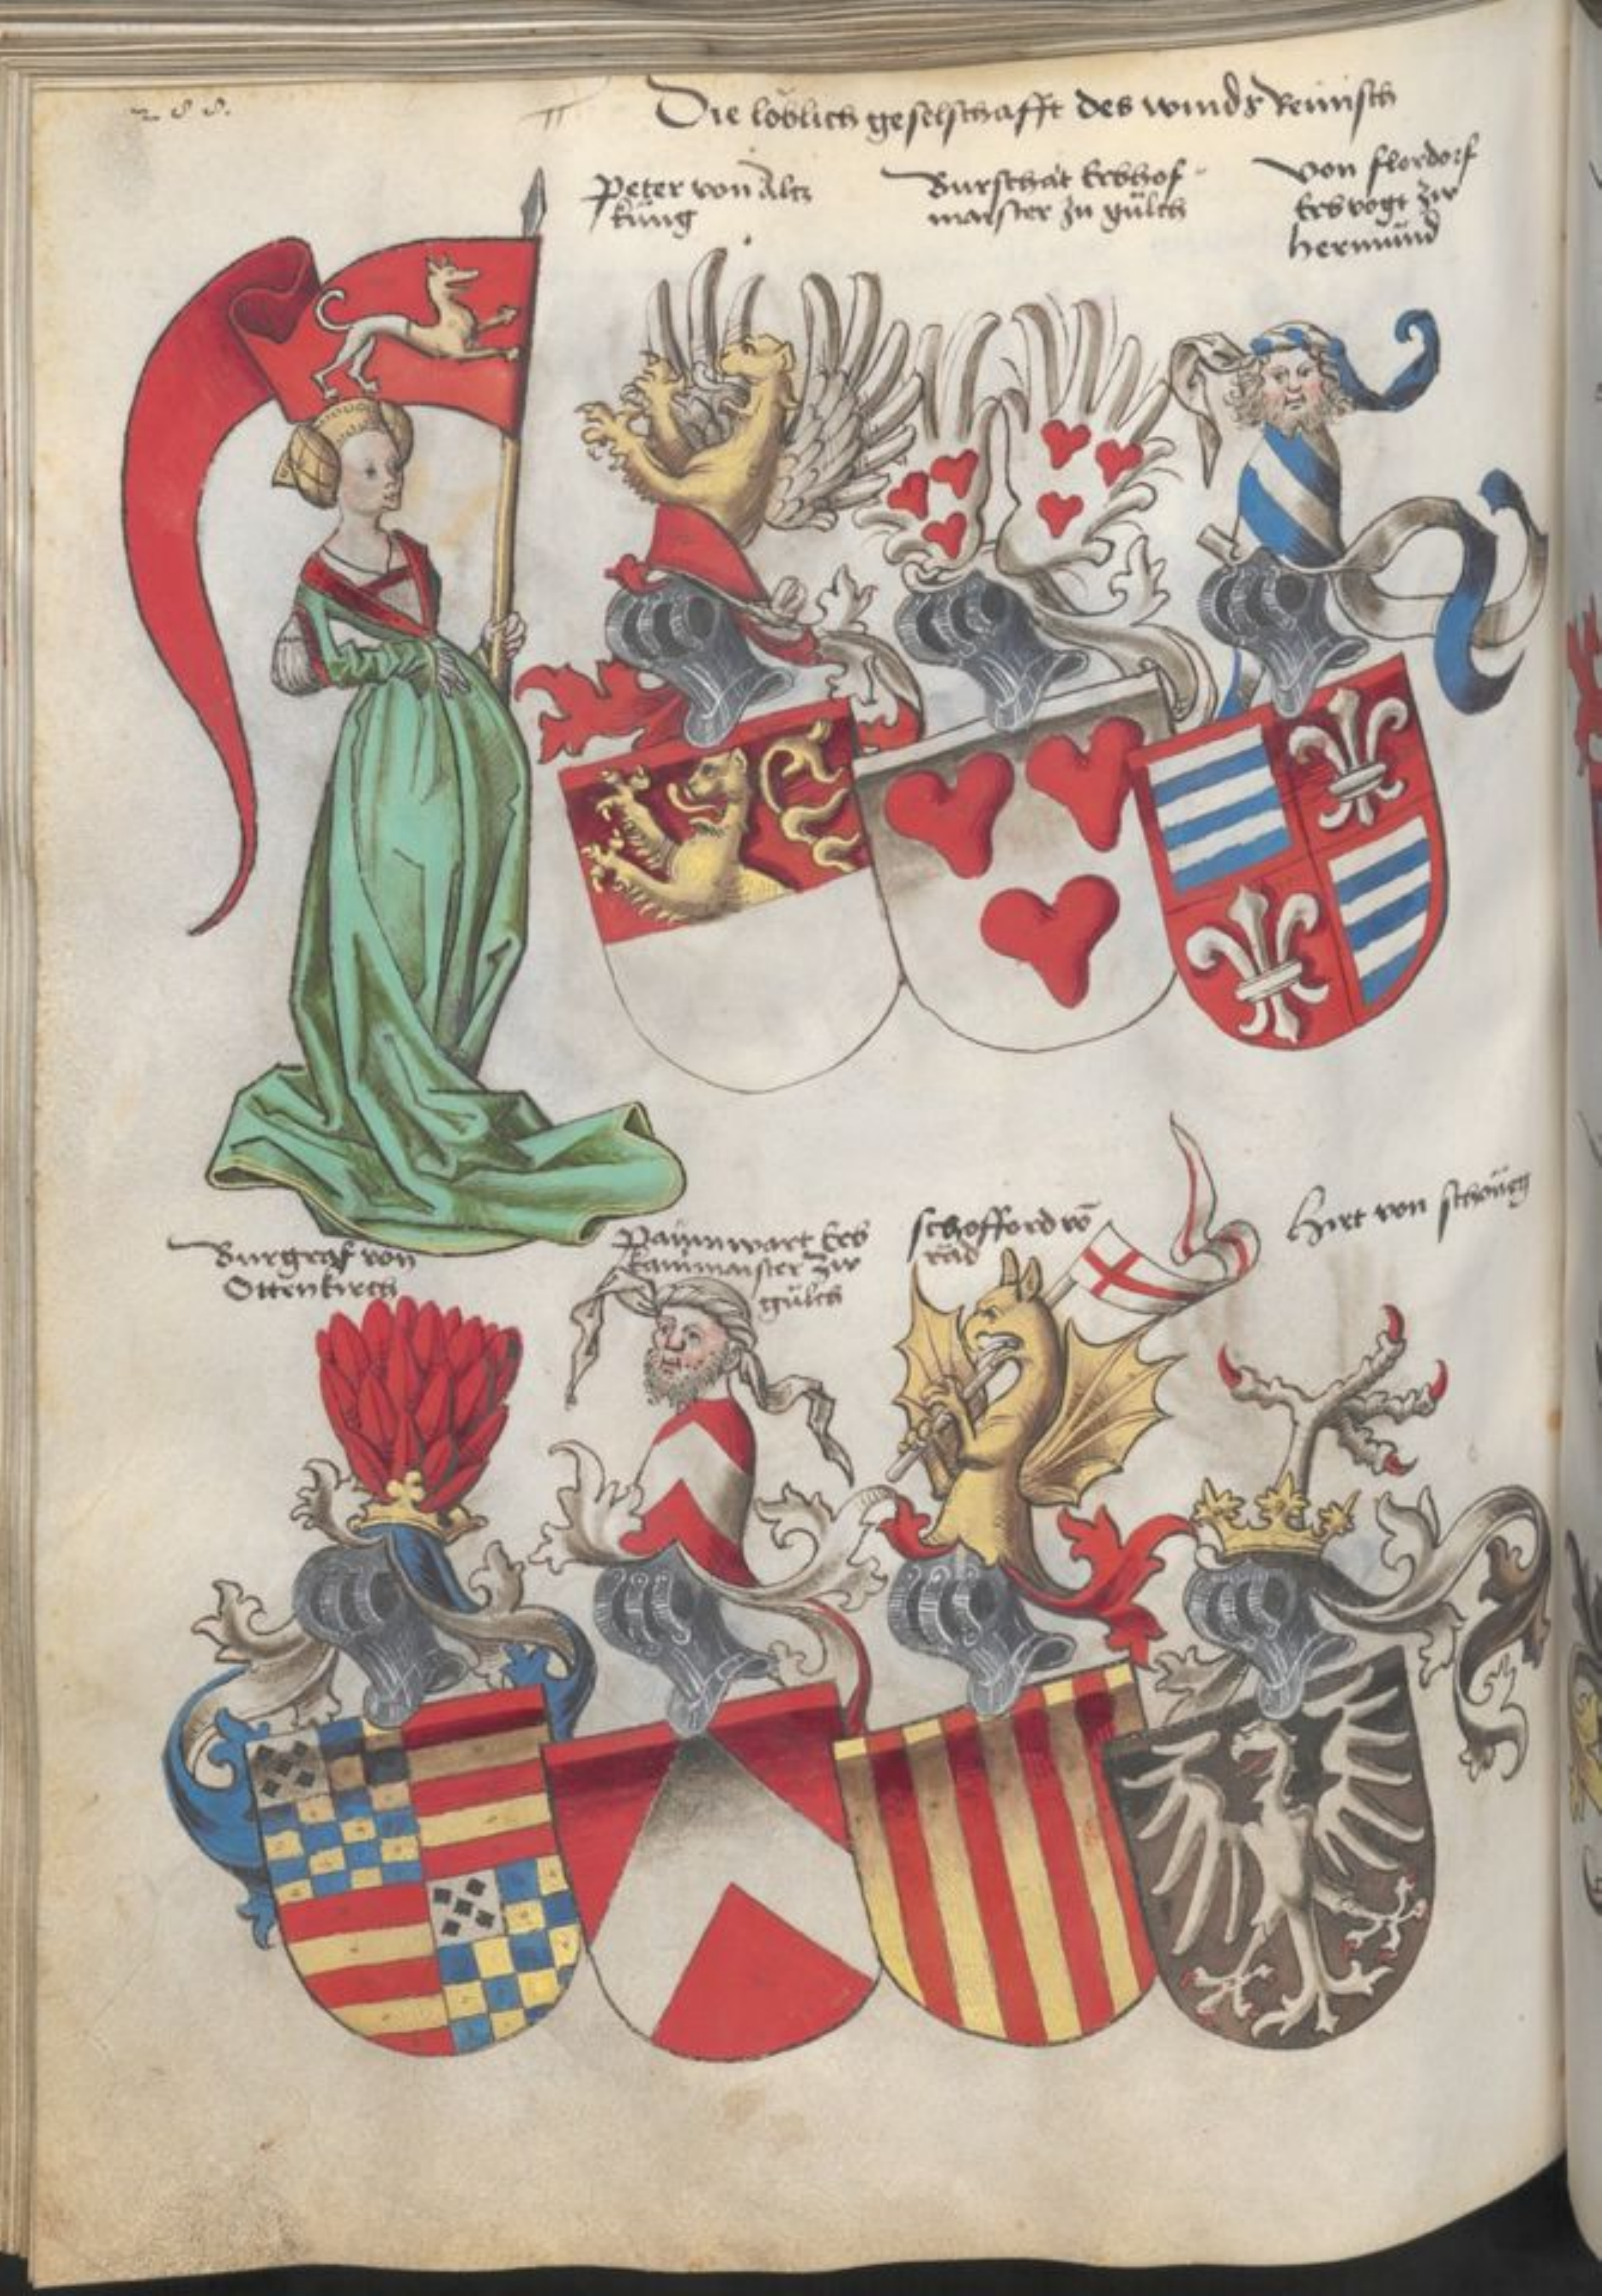 288.
Die loblich geselschafft des winds Reinisch
Peter von Altz
küng
Burschat Erbhof
maister zu gülch
von flordorf
Erbvogt zw
hermünd
Burgraf von
Ottenkirch
Paümwart Erb
kammaister zw
gülch
schofford vō
rād
Hirt von schöneg